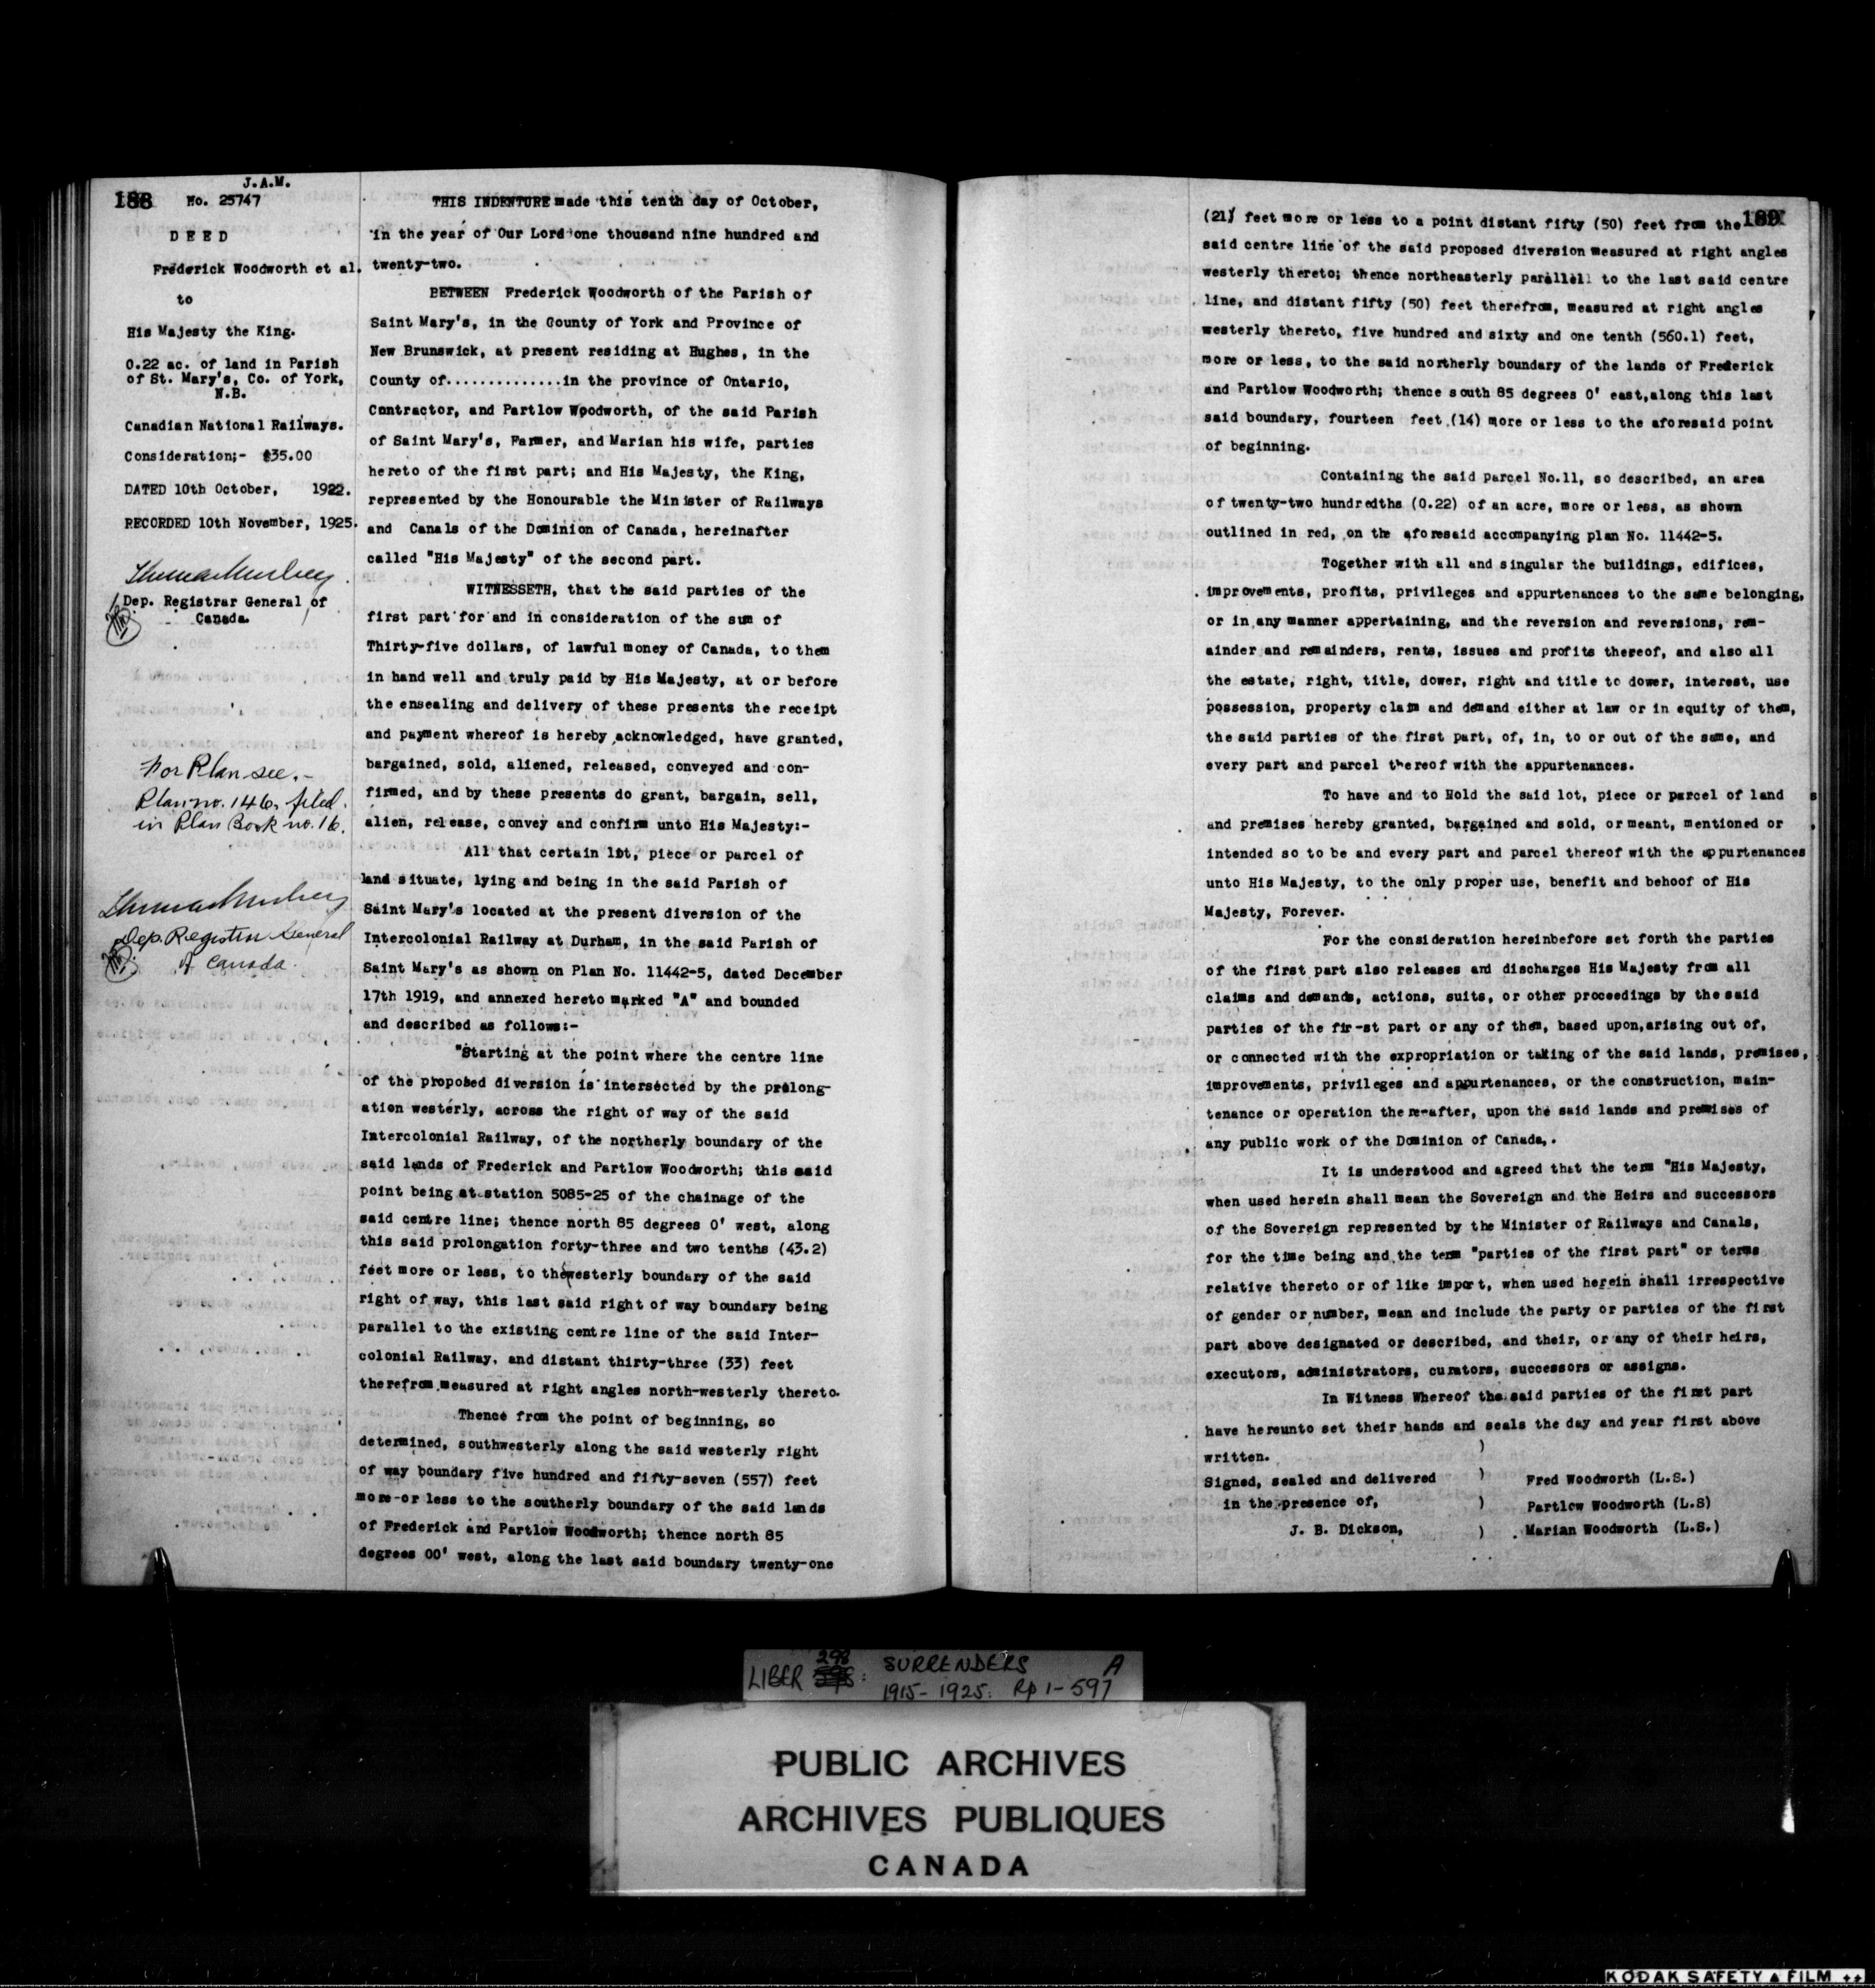 J.A.M.
188
No. 25747
DEED
Frederick Woodworth et al.
to
His Majesty the King.
0.22 ac. of land in Parish
of St. Mary's, Co. of York,
N.B.
Canadian National Railways.
Consideration;- $35.00
DATED 10th October, 1922.
RECORDED 10th November, 1925.
Dep. Registrar General of
Canada.
For Plan see.-
Plan no. 146, filed.
in Plan Book no. 16.
Dep. Registrar General
of Canada.
THIS INDENTURE made this tenth day of October,
in the year of Our Lord one thousand nine hundred and
twenty-two.
BETWEEN Frederick Woodworth of the Parish of
Saint Mary's, in the County of York and Province of
New Brunswick, at present residing at Hughes, in the
County of..............in the province of Ontario,
Contractor, and Partlow Woodworth, of the said Parish
of Saint Mary's, Farmer, and Marian his wife, parties
hereto of the first part; and His Majesty, the King,
represented by the Honourable the Minister of Railways
and Canals of the Dominion of Canada, hereinafter
called "His Majesty" of the second part.
WITNESSETH, that the said parties of the
first part for and in consideration of the sum of
Thirty-five dollars, of lawful money of Canada, to them
in hand well and truly paid by His Majesty, at or before
the ensealing and delivery of these presents the receipt
and payment whereof is hereby acknowledged, have granted,
bargained, sold, aliened, released, conveyed and con-
firmed, and by these presents do grant, bargain, sell,
alien, release, convey and confirm unto His Majesty:-
All that certain lot, piece or parcel of
land situate, lying and being in the said Parish of
Saint Mary's located at the present diversion of the
Intercolonial Railway at Durham, in the said Parish of
Saint Mary's as shown on Plan No. 11442-5, dated December
17th 1919, and annexed hereto marked "A" and bounded
and described as follows:-
"Starting at the point where the centre line
of the proposed diversion is intersected by the prolong-
ation westerly, across the right of way of the said
Intercolonial Railway, of the northerly boundary of the
said lands of Frederick and Partlow Woodworth; this said
point being at station 5085-25 of the chainage of the
said centre line; thence north 85 degrees 0' west, along
this said prolongation forty-three and two tenths (43.2)
feet more or less, to the westerly boundary of the said
right of way, this last said right of way boundary being
parallel to the existing centre line of the said Inter-
colonial Railway, and distant thirty-three (33) feet
therefrom measured at right angles north-westerly thereto.
Thence from the point of beginning, so
determined, southwesterly along the said westerly right
of way boundary five hundred and fifty-seven (557) feet
more-or less to the southerly boundary of the said lands
of Frederick and Partlow Woodworth; thence north 85
degrees 00' west, along the last said boundary twenty-one
189
(21) feet more or less to a point distant fifty (50) feet from the
said centre line of the said proposed diversion measured at right angles
westerly thereto; thence northeasterly parallell to the last said centre
line, and distant fifty (50) feet therefrom, measured at right angles
westerly thereto, five hundred and sixty and one tenth (560.1) feet,
more or less, to the said northerly boundary of the lands of Frederick
and Partlow Woodworth; thence south 85 degrees 0' east, along this last
said boundary, fourteen feet (14) more or less to the aforesaid point
of beginning.
Containing the said parcel No.11, so described, an area
of twenty-two hundredths (0.22) of an acre, more or less, as shown
outlined in red, on the aforesaid accompanying plan No. 11442-5.
Together with all and singular the buildings, edifices,
improvements, profits, privileges and appurtenances to the same belonging,
or in any manner appertaining, and the reversion and reversions, rem-
ainder and remainders, rents, issues and profits thereof, and also all
the estate, right, title, dower, right and title to dower, interest, use
possession, property claim and demand either at law or in equity of them,
the said parties of the first part, of, in, to or out of the same, and
every part and parcel thereof with the appurtenances.
To have and to Hold the said lot, piece or parcel of land
and premises hereby granted, bargained and sold, or meant, mentioned or
intended so to be and every part and parcel thereof with the appurtenances
unto His Majesty, to the only proper use, benefit and behoof of His
Majesty, Forever.
For the consideration hereinbefore set forth the parties
of the first part also releases and discharges His Majesty from all
claims and demands, actions, suits, or other proceedings by the said
parties of the fir-st part or any of them, based upon, arising out of,
or connected with the expropriation or taking of the said lands, premises,
improvements, privileges and appurtenances, or the construction, main-
tenance or operation there-after, upon the said lands and premises of
any public work of the Dominion of Canada,.
It is understood and agreed that the term "His Majesty,
when used herein shall mean the Sovereign and the Heirs and successors
of the Sovereign represented by the Minister of Railways and Canals,
for the time being and the term "parties of the first part" or terms
relative thereto or of like import, when used herein shall irrespective
of gender or number, mean and include the party or parties of the first
part above designated or described, and their, or any of their heirs,
executors, administrators, curators, successors or assigns.
In Witness Whereof the said parties of the first part
have hereunto set their hands and seals the day and year first above
written. )
Signed, sealed and delivered ) Fred Woodworth (L.S.)
in the presence of, ) Partlow Woodworth (L.S)
J. B. Dickson, ) Marian Woodworth (L.S.)
LIBER 298: SURRENDERS A
1915-1925: Rp 1-597
PUBLIC ARCHIVES
ARCHIVES PUBLIQUES
CANADA
KODAK SAFETY FILM